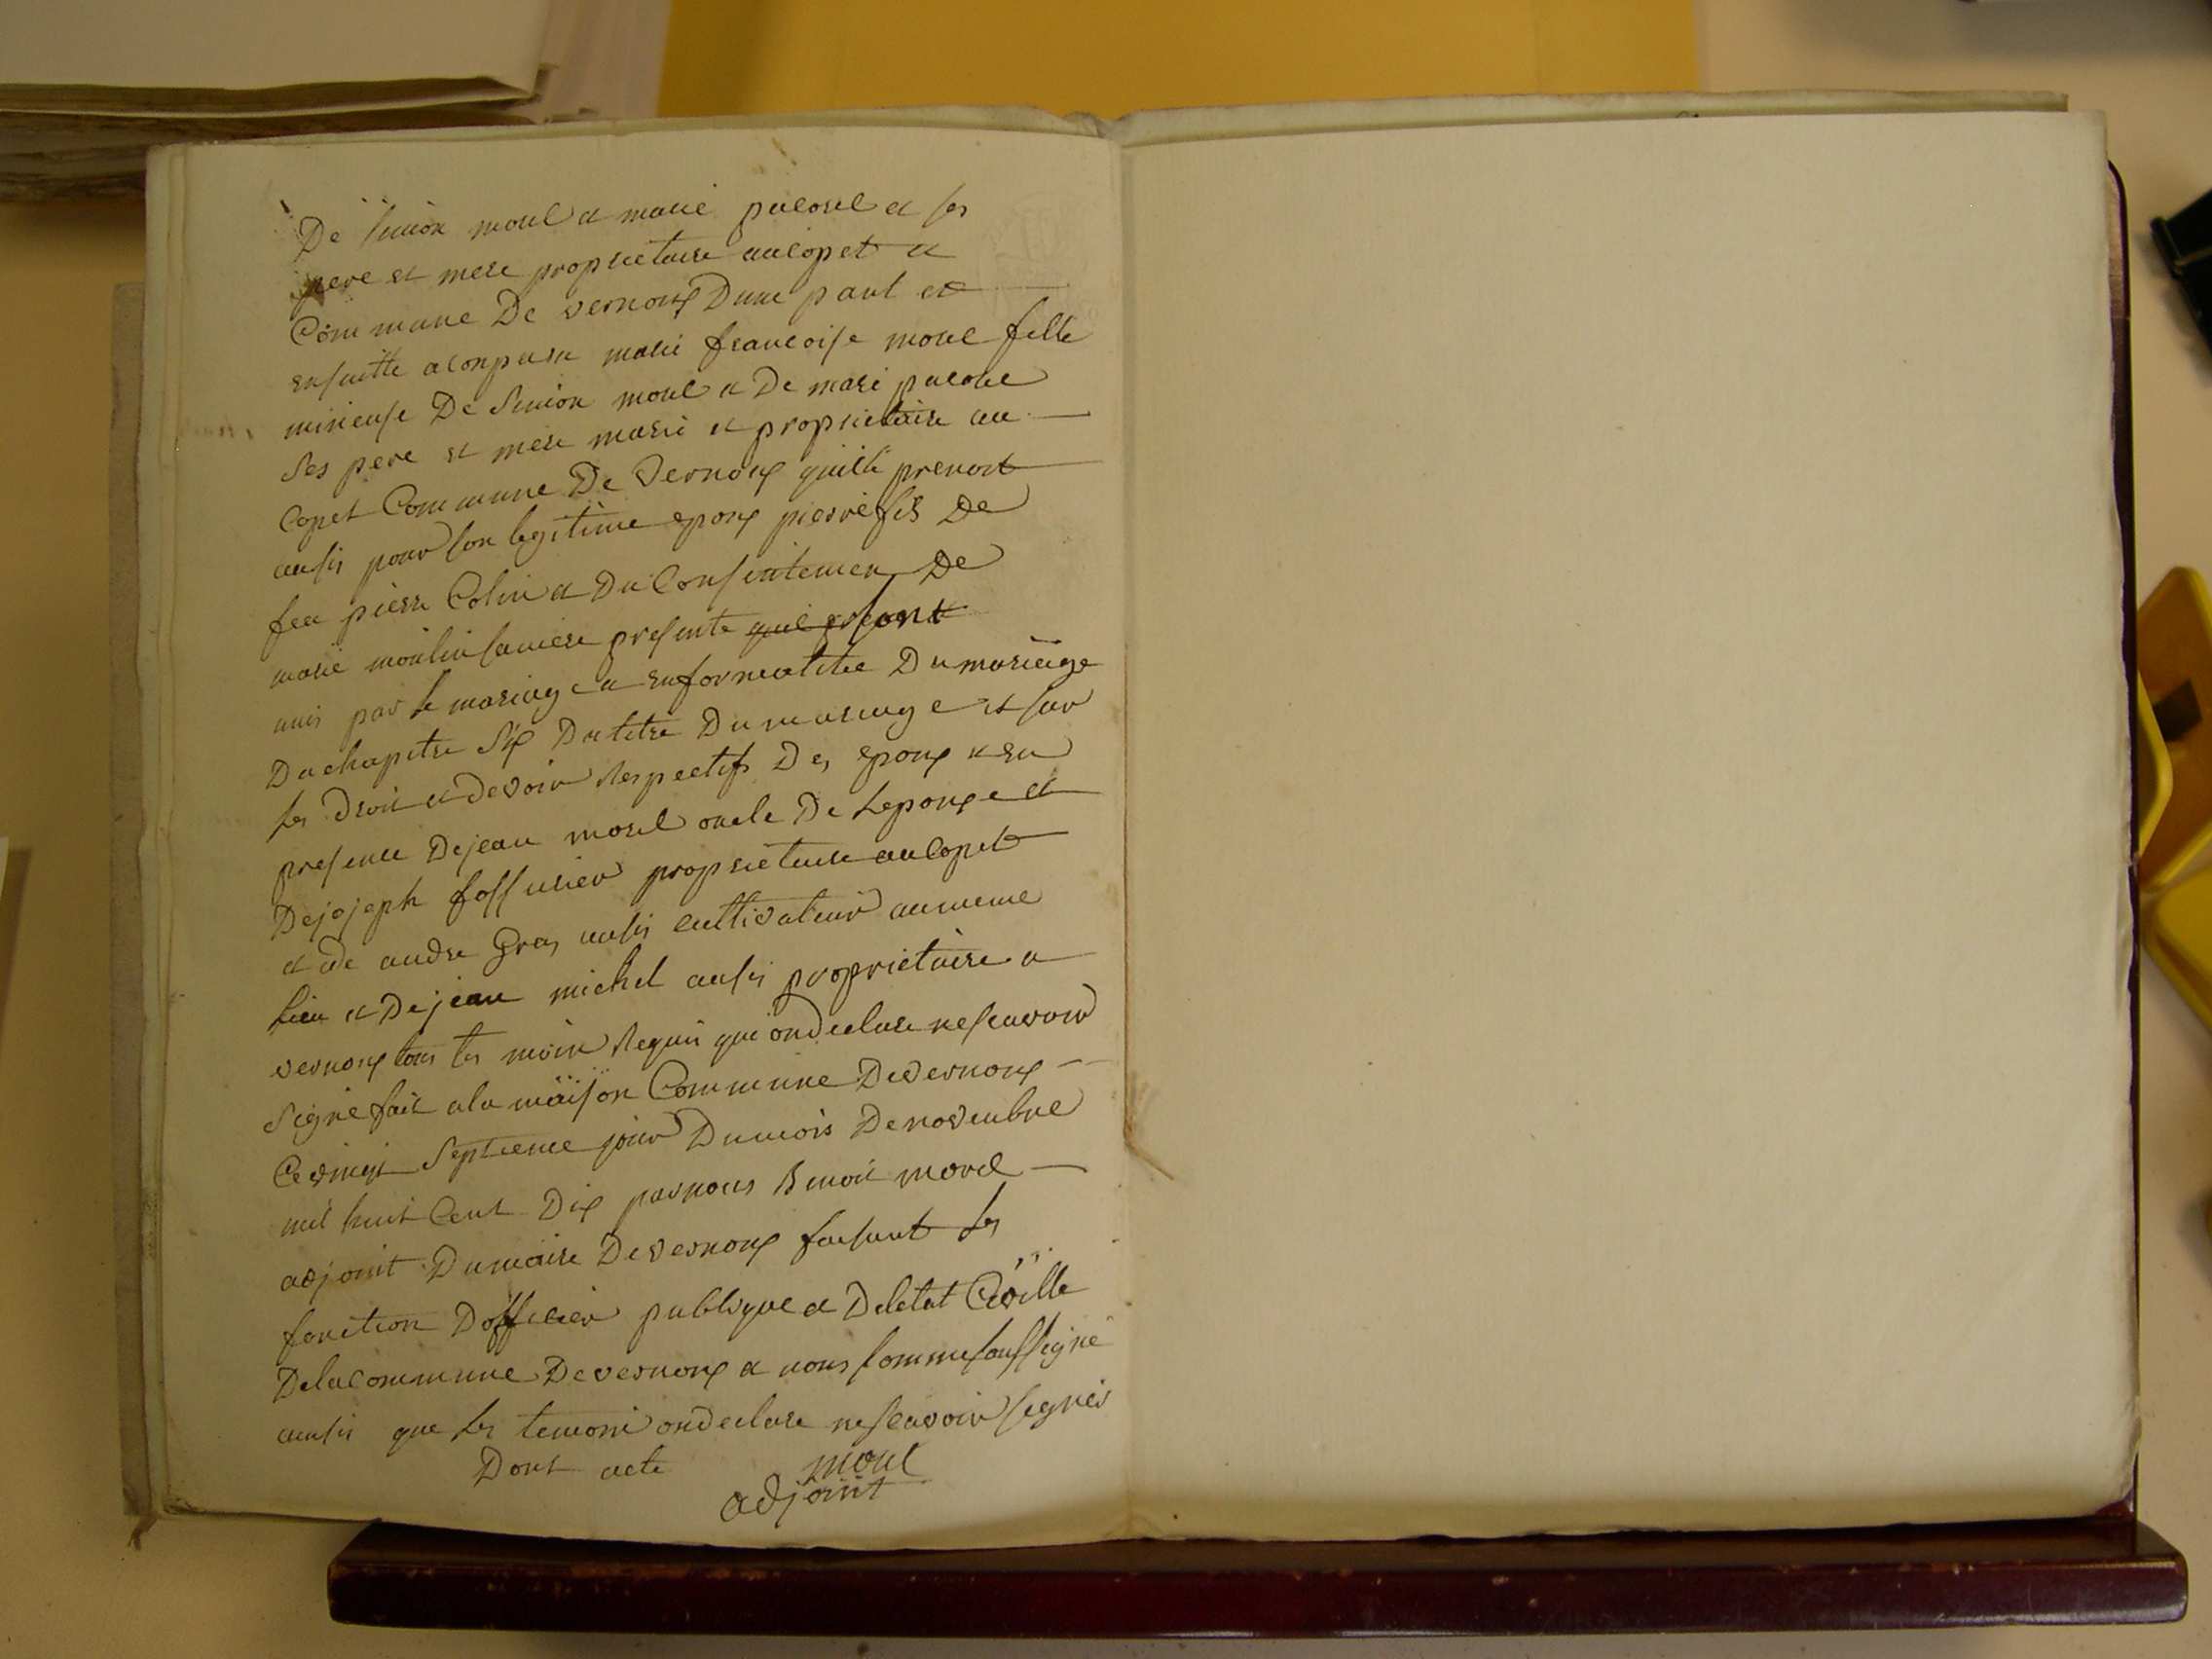 De simon morel et marie pacorel et ses
pere et mere proprietaire au copet et
Commune De vernoux Dune part et
ensuitte a conparu marie francoise morel fille
minieuse De Simon morel et De marie pacorel
Ses pere et mere marié et proprietaire au
Copet Commune De Vernoux quille prenoit
ausis pour son legitime epoux pierre fils De
feu pierre Colin et Du Consintemen De
marie moulin sa mere presente quil se sont
unis par le mariage et en formalitee Du mariage
Du chapitre Six Du titre Du mariage et sur
les Droit et devoir Respectifs Des epoux et en
presence De jean morel oncle De Lepouxe et
De jojeph fossurier proprietaire au Copet
et de andre Gras ausis cultivateur au meme
lieu et De jean michel ausis proprietaire a
vernoux tous tes moin Requis que on declare ne scavoir
Signé fait a la maison Commune De vernoux
Ce vingt Septieme jour Du mois De novembre
mil huit Cent Dix par nous Benoit morel
adjoint Du maire De vernoux faisant les
fonction Dofficier publique et De letat Civille
De la Commune De vernoux et nous somme soussigné
ausis que les temoin on declare ne scavoir signés
Dont acte morel
adjoint